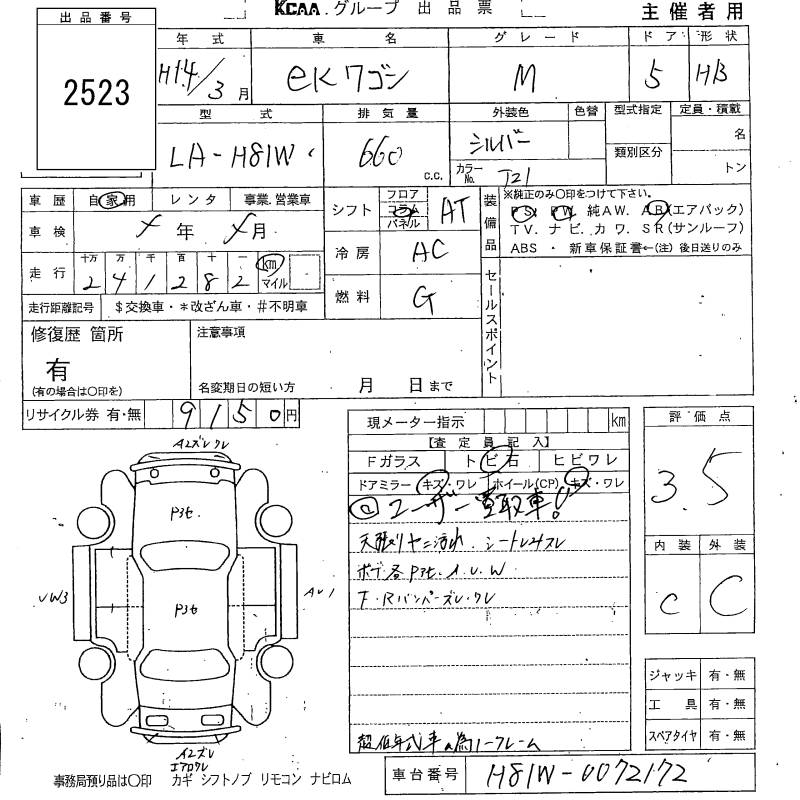 KCAA.グループ 出品票
主催者用
出品番号
2523
年式 車名 グレード ドア 形状
H14/3月 eKワゴン M 5 HB
型式 排気量 外装色 色替 型式指定 定員・積載
LA-H81W 660 c.c. シルバー 名
カラーNo. T21 類別区分 トン
車歴 自家用 レンタ 事業.営業車
車検 年 月
走行 十万 万 千 百 十 一 km マイル
2 4 1 2 8 2
走行距離記号 $交換車・*改ざん車・#不明車
シフト フロア コラム パネル AT
冷房 AC
燃料 G
装備品 ※純正のみ○印をつけて下さい。
PS. PW. 純AW. AB(エアバック)
TV. ナビ. カワ. SR(サンルーフ)
ABS ・ 新車保証書←(注)後日送りのみ
セールスポイント
修復歴 箇所
有
(有の場合は○印を)
注意事項
名変期日の短い方 月 日まで
リサイクル券 有・無 9150円
現メーター指示 km
【査定員記入】
Fガラス トビ石 ヒビワレ
ドアミラー キズ・ワレ ホイール(CP) キズ・ワレ
ユーザー買取車!
天張りヤニ汚れ. シートレールスレ
ボデ各P3セ. A.U.W
F.Rバンパーズレ.ワレ
超低年式車の為ノークレーム
評価点
3.5
内装 外装
C C
ジャッキ 有・無
工具 有・無
スペアタイヤ 有・無
A2ズレワレ
P3セ.
P3セ
UW3
AU1
A2ズレ
エアロワレ
事務局預り品は○印 カギ シフトノブ リモコン ナビロム
車台番号 H81W-0072172